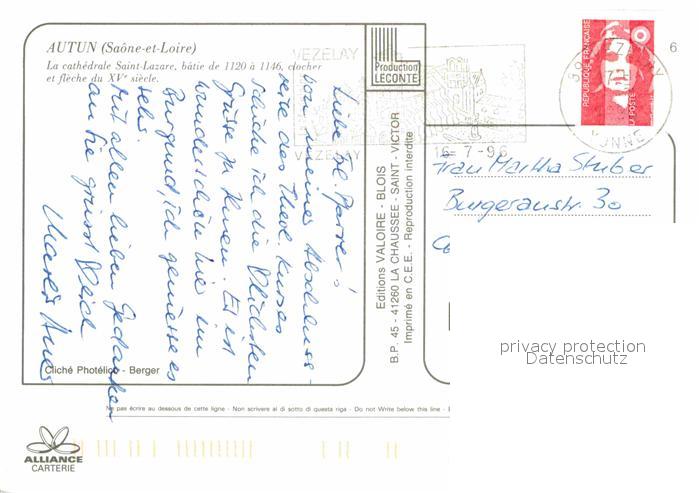 AUTUN (Saône-et-Loire)
La cathédrale Saint-Lazare, bâtie de 1120 à 1146, clocher
et flèche du XVe siècle.
Production
LECONTE
VEZELAY
VEZELAY
16-7-96
RÉPUBLIQUE FRANÇAISE
LA POSTE
YONNE
6
Liebe
von meiner Abschluss-
reise des Theol. Kurses
schicke ich die herzlichsten
Grüsse zu Ihnen. Es ist
wunderschön hier im
Burgund, ich geniesse es
sehr.
Mit allen lieben Gedanken
an Sie grüsst Dich
Frau Martha Stuber
Burgeraustr. 30
Editions VALOIRE - BLOIS
B.P. 45 - 41260 LA CHAUSSEE - SAINT - VICTOR
Imprimé en C.E.E. - Reproduction interdite
privacy protection
Datenschutz
Cliché Photélico - Berger
Ne pas écrire au dessous de cette ligne - Non scrivere al di sotto di questa riga - Do not Write below this line -
ALLIANCE
CARTERIE